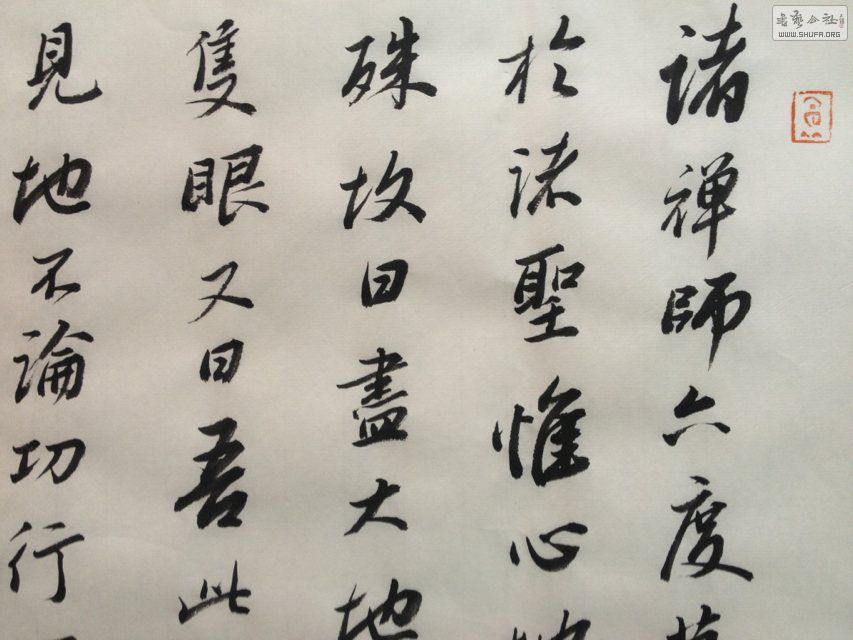 諸禅師六度萬
於諸聖惟心地
殊故曰盡大地
隻眼又曰吾此
見地不論功行
WWW.SHUFA.ORG